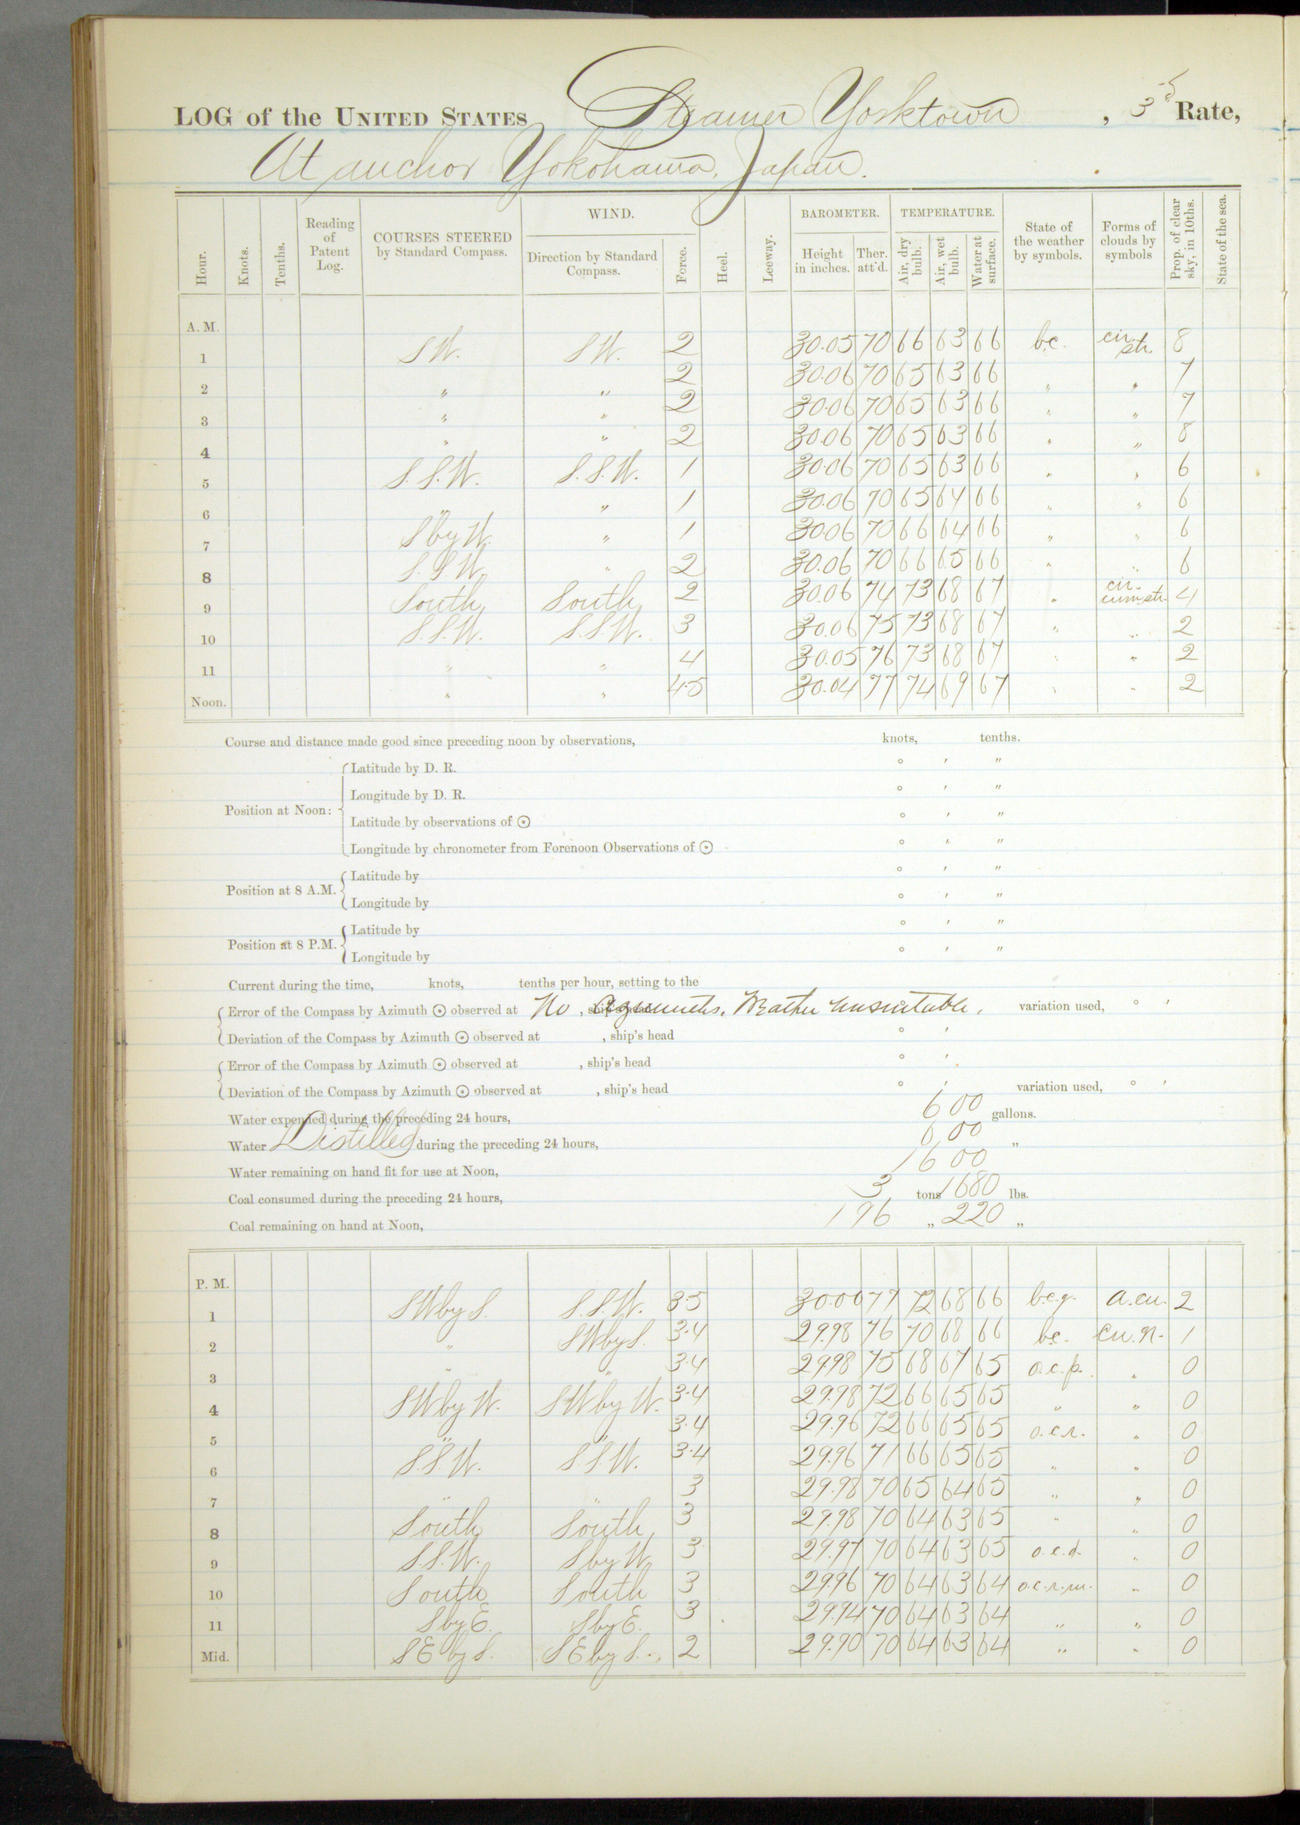 LOG of the UNITED STATES Steamer Yorktown, 3d Rate,
At anchor Yokohama, Japan.
Hour. Knots. Tenths. Reading of Patent Log. COURSES STEERED by Standard Compass. WIND. Direction by Standard Compass. Force. Heel. Leeway. BAROMETER. Height in inches. Ther. att'd. TEMPERATURE. Air, dry bulb. Air, wet bulb. Water at surface. State of the weather by symbols. Forms of clouds by symbols Prop. of clear sky, in 10ths. State of the sea.
A. M.
1 SW. SW. 2 30.05 70 66 63 66 b.c. cir. str. 8
2 " " 2 30.06 70 65 63 66 " " 7
3 " " 2 30.06 70 65 63 66 " " 7
4 " " 2 30.06 70 65 63 66 " " 8
5 S.S.W. S.S.W. 1 30.06 70 65 63 66 " " 6
6 " " 1 30.06 70 65 64 66 " " 6
7 S by W. " 1 30.06 70 66 64 66 " " 6
8 S.S.W. " 2 30.06 70 66 65 66 " " 6
9 South South 2 30.06 74 73 68 67 " cir. cum. str. 4
10 S.S.W. S.S.W. 3 30.06 75 73 68 67 " " 2
11 " " 4 30.05 76 73 68 67 " " 2
Noon. " " 4.5 30.04 77 74 69 67 " " 2
Course and distance made good since preceding noon by observations, knots, tenths.
Position at Noon: Latitude by D. R. ° ' "
Longitude by D. R. ° ' "
Latitude by observations of ☉ ° ' "
Longitude by chronometer from Forenoon Observations of ☉ ° ' "
Position at 8 A.M. Latitude by ° ' "
Longitude by ° ' "
Position at 8 P.M. Latitude by ° ' "
Longitude by ° ' "
Current during the time, knots, tenths per hour, setting to the
Error of the Compass by Azimuth ☉ observed at No , ship's head Azimuths. Weather unsuitable. variation used, ° '
Deviation of the Compass by Azimuth ☉ observed at , ship's head ° '
Error of the Compass by Azimuth ☉ observed at , ship's head ° '
Deviation of the Compass by Azimuth ☉ observed at , ship's head ° ' variation used, ° '
Water expended during the preceding 24 hours, 600 gallons.
Water Distilled during the preceding 24 hours, 600 "
Water remaining on hand fit for use at Noon, 1600
Coal consumed during the preceding 24 hours, 3 tons 1680 lbs.
Coal remaining on hand at Noon, 196 " 220 "
P. M.
1 SW by S. S.S.W. 3.5 30.00 77 72 68 66 b.c.q. a.cu. 2
2 " SW by S. 3.4 29.98 76 70 68 66 b.c. cu.n. 1
3 " " 3.4 29.98 75 68 67 65 o.c.p. " 0
4 SW by W. SW by W. 3.4 29.98 72 66 65 65 " " 0
5 " " 3.4 29.96 72 66 65 65 o.c.r. " 0
6 S.S.W. S.S.W. 3.4 29.96 71 66 65 65 " " 0
7 " " 3 29.98 70 65 64 65 " " 0
8 South South 3 29.98 70 64 63 65 " " 0
9 S.S.W. S by W. 3 29.97 70 64 63 65 o.c.d. " 0
10 South South 3 29.96 70 64 63 64 o.c.r.m. " 0
11 S by E. S by E. 3 29.94 70 64 63 64 " " 0
Mid. SE by S. SE by S. 2 29.90 70 64 63 64 " " 0